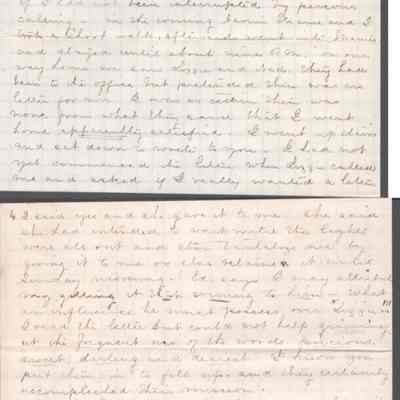 if I had not been interrupted by
calling. In the evening Jessie and I
took a short walk, afterwards went into
and stayed until about nine P.M. On our
way home we saw Lizzie and They had
been to the office but pretended there was no
letter for me. I was so certain there was
none from what they said that I went
home apparently satisfied. I went up stairs
and sat down to write to you. I had not
yet commenced the letter when Lizzie called
me and asked if I really wanted a letter
4 I said yes and she gave it to me. She said
she had intended to wait until the lights
were all out and then me by
giving it to me or else retain it until
Sunday morning. Ed says I may
my getting it this evening to him. What
an influence he must possess over "Lizzie"!!!
I read the letter but could not help grinning
at the frequent use of the words precious,
sweet, darling and dearest. I know you
put them in to fill up and they certainly
accomplished their mission.